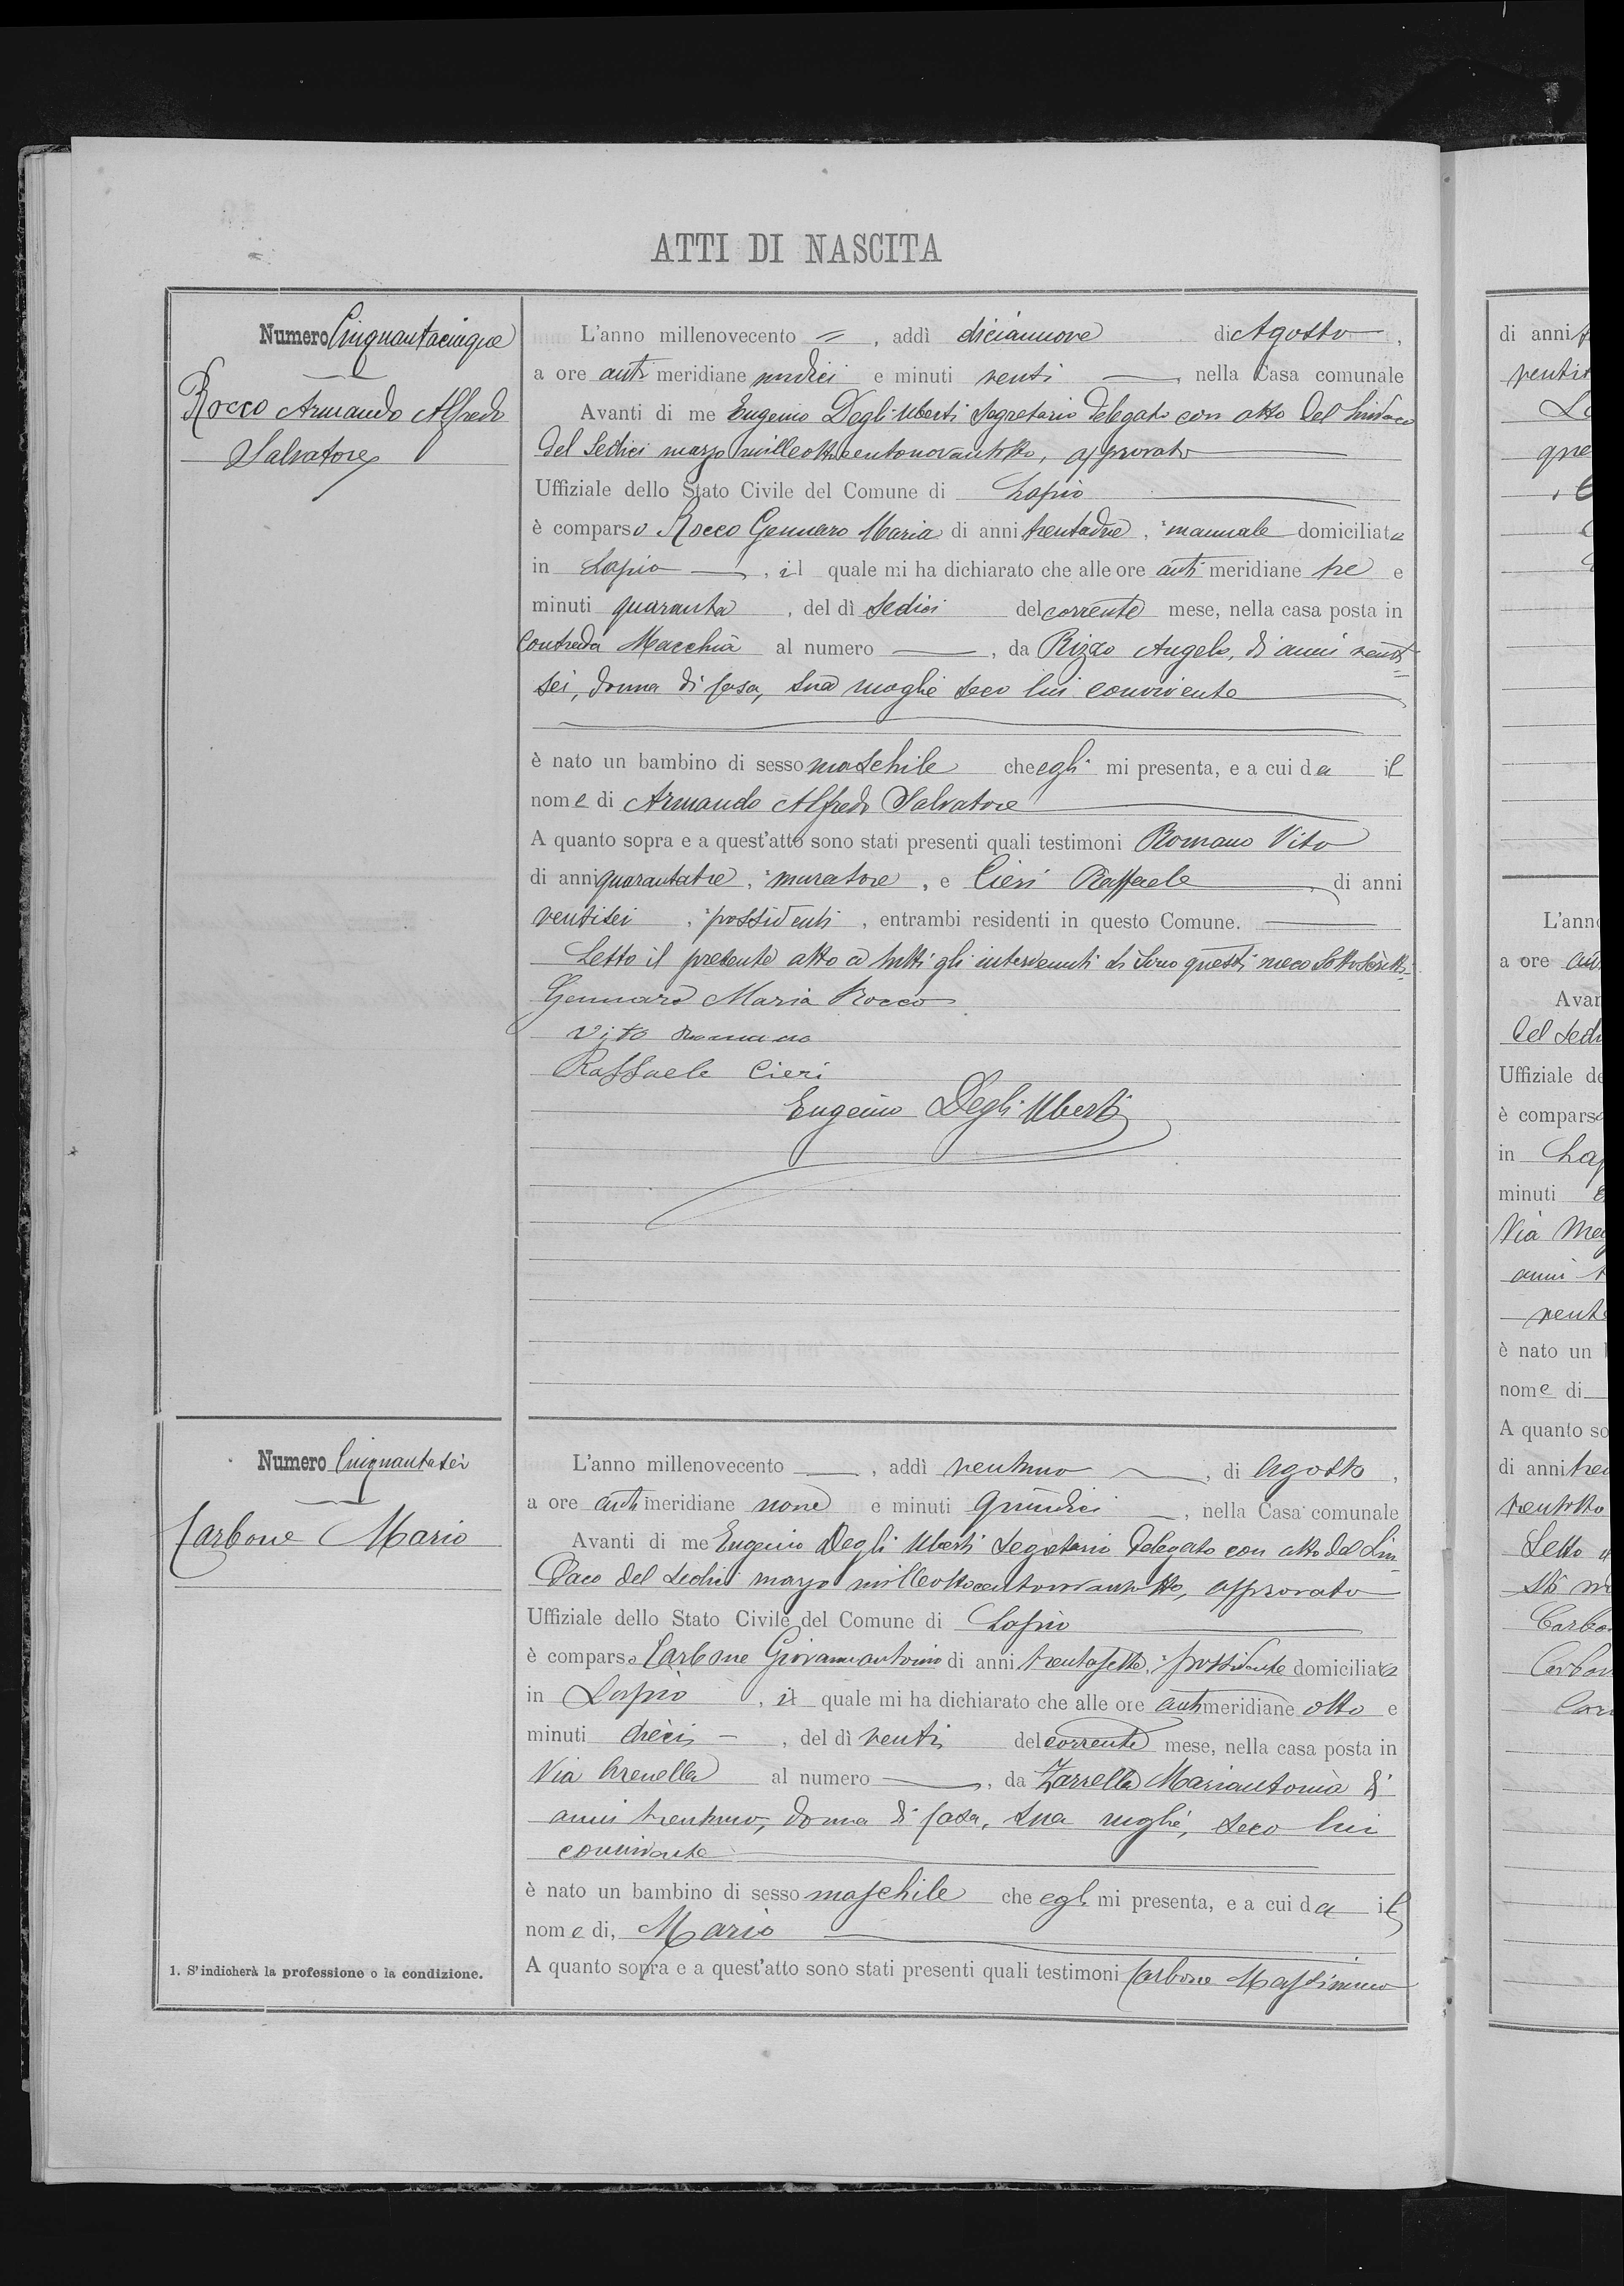 ATTI DI NASCITA
Numero Cinquantacinque
Rocco Armando Alfredo
Salvatore
L'anno millenovecento =, addì diciannove di Agosto,
a ore anti meridiane undici e minuti venti —, nella Casa comunale
Avanti di me Eugenio Degli Uberti Segretario delegato con atto del Sindaco
del Sedici marzo milleottocentonovantotto, approvato
Uffiziale dello Stato Civile del Comune di Lapio
è comparso Rocco Gennaro Maria di anni trentadue, ¹manuale domiciliato
in Lapio —, il quale mi ha dichiarato che alle ore anti meridiane tre e
minuti quaranta, del dì Sedici del corrente mese, nella casa posta in
Contrada Macchia al numero —, da Rizzo Angela, di anni venti=
sei, donna di casa, sua moglie seco lui convivente
è nato un bambino di sesso maschile che egli mi presenta, e a cui da il
nome di Armando Alfredo Salvatore
A quanto sopra e a quest'atto sono stati presenti quali testimoni Romano Vito
di anni quarantatre, ¹muratore, e Cieri Raffaele —, di anni
ventisei, ¹possidenti, entrambi residenti in questo Comune. —
Letto il presente atto a tutti gli intervenuti si sono questi meco sottoscritti.
Gennaro Maria Rocco
Vito Romano
Raffaele Cieri
Eugenio Degli Uberti
Numero Cinquantasei
Carbone Mario
L'anno millenovecento —, addì ventuno —, di Agosto,
a ore anti meridiane nove e minuti quindici —, nella Casa comunale
Avanti di me Eugenio Degli Uberti Segretario delegato con atto del Sin=
daco del Sedici marzo milleottocentonovantotto, approvato
Uffiziale dello Stato Civile del Comune di Lapio
è comparso Carbone Giovannantonio di anni trentasette, ¹possidente domiciliato
in Lapio, il quale mi ha dichiarato che alle ore anti meridiane otto e
minuti dieci —, del dì venti del corrente mese, nella casa posta in
Via Arenella al numero —, da Zarrella Mariantonia di
anni trentuno, donna di casa, sua moglie, seco lui
convivente
è nato un bambino di sesso maschile che egli mi presenta, e a cui da il
nome di, Mario
A quanto sopra e a quest'atto sono stati presenti quali testimoni Carbone Massimino
1. S'indicherà la professione o la condizione.
di anni
L'ann
a ore
Avan
del Sedi
Uffiziale de
è compars
in Lap
minuti
Via
anni
è nato un
nome di
A quanto so
di anni
Letto